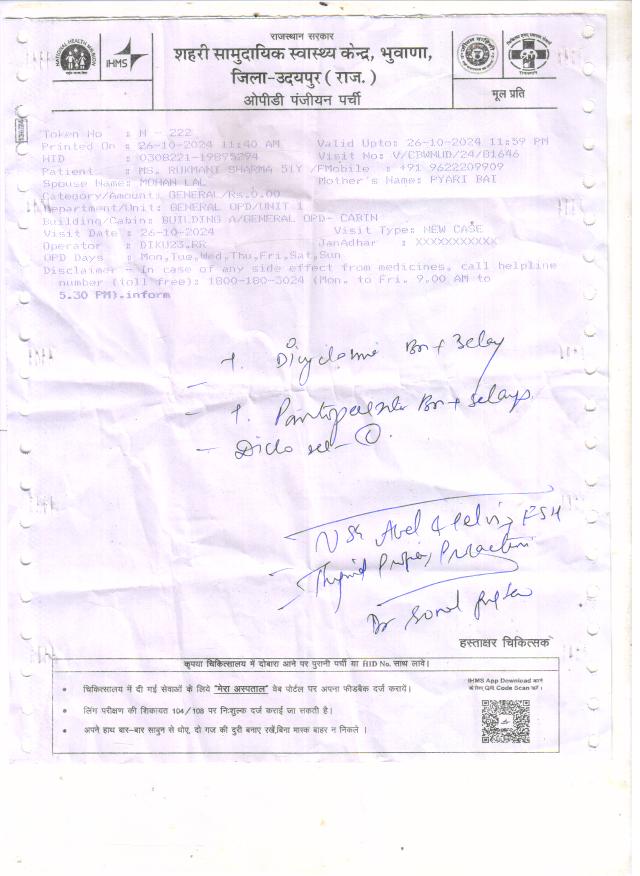 राजस्थान सरकार
शहरी सामुदायिक स्वास्थ्य केन्द्र, भुवाणा,
जिला-उदयपुर ( राज. )
ओपीडी पंजीयन पर्ची
मूल प्रति
NATIONAL HEALTH MISSION
IHMS
Token No : N - 222
Printed On : 26-10-2024 11:40 AM Valid Upto: 26-10-2024 11:59 PM
HID : 0308221-19875294 Visit No: V/CBWNUD/24/81646
Patient : MS. RUKMANI SHARMA 51Y /F Mobile : +91 9622209909
Spouse Name: MOHAN LAL Mother's Name: PYARI BAI
Category/Amount: GENERAL/Rs.0.00
Department/Unit: GENERAL OPD/UNIT 1
Building/Cabin: BUILDING A/GENERAL OPD- CABIN
Visit Date : 26-10-2024 Visit Type: NEW CASE
Operator : DIKU23.RR JanAdhar : XXXXXXXXXXX
OPD Days : Mon,Tue,Wed,Thu,Fri,Sat,Sun
Disclaimer - In case of any side effect from medicines, call helpline
number (toll free): 1800-180-3024 (Mon. to Fri. 9.00 AM to
5.30 PM).inform
- T. Dicyclomine
- T. Pantoprazole
- Diclo 1
Thyroid Profile, Prolactin
Dr Sonal Gupta
हस्ताक्षर चिकित्सक
कृपया चिकित्सालय में दोबारा आने पर पुरानी पर्ची या HID No. साथ लावें।
• चिकित्सालय में दी गई सेवाओं के लिये "मेरा अस्पताल" वेब पोर्टल पर अपना फीडबैक दर्ज करायें।
• लिंग परीक्षण की शिकायत 104/108 पर निःशुल्क दर्ज कराई जा सकती है।
• अपने हाथ बार-बार साबुन से धोए, दो गज की दुरी बनाए रखें,बिना मास्क बाहर न निकले ।
IHMS App Download करने
के लिए QR Code Scan करें।